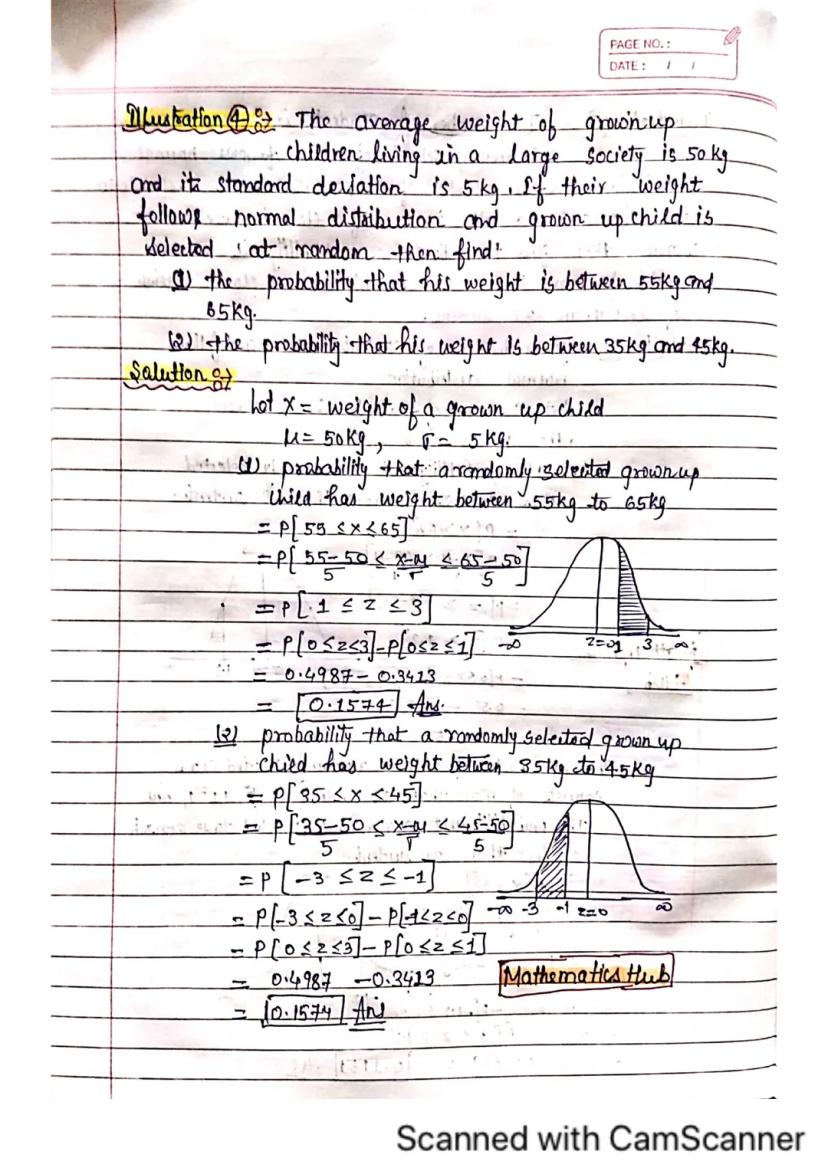 PAGE NO.:
DATE: / /
Illustration ④ :→ The average weight of grown up
children living in a large society is 50 kg
and its standard deviation is 5 kg. If their weight
follows normal distribution and grown up child is
selected at random then find:
(1) the probability that his weight is between 55kg and
65kg.
(2) the probability that his weight is between 35kg and 45kg.
Solution :→
Let x = weight of a grown up child
μ = 50kg, σ = 5kg.
(1) probability that a randomly selected grown up
child has weight between 55kg to 65kg
= P[55 ≤ x ≤ 65]
= P[55-50/5 ≤ x-μ/σ ≤ 65-50/5]
= P[1 ≤ z ≤ 3]
= P[0≤z≤3] - P[0≤z≤1]
-∞ z=0 1 3 ∞
= 0.4987 - 0.3413
= 0.1574 Ans.
(2) probability that a randomly selected grown up
child has weight between 35kg to 45kg
= P[35 ≤ x ≤ 45]
= P[35-50/5 ≤ x-μ/σ ≤ 45-50/5]
= P[-3 ≤ z ≤ -1]
-∞ -3 -1 z=0 ∞
= P[-3≤z≤0] - P[-1≤z≤0]
= P[0≤z≤3] - P[0≤z≤1]
= 0.4987 - 0.3413
Mathematics Hub
= 0.1574 Ans
Scanned with CamScanner